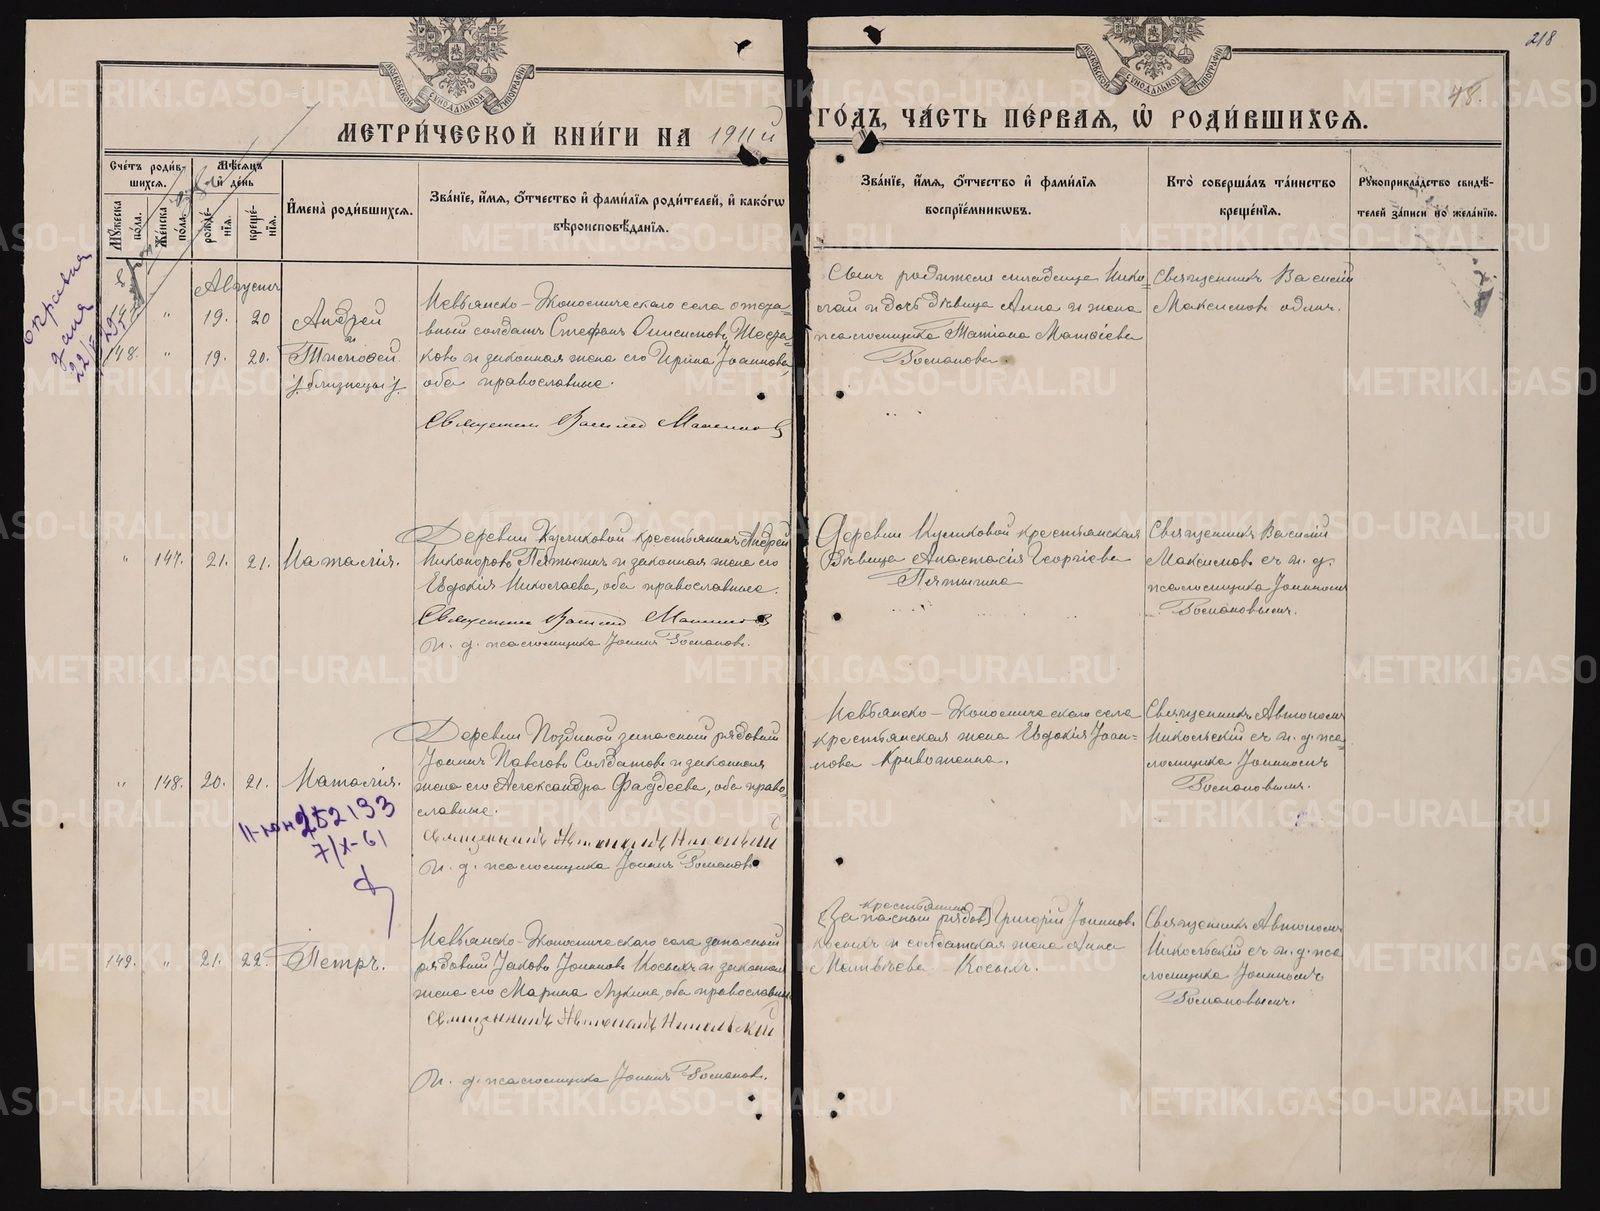 218
48.
МЕТРИ́ЧЕСКОЙ КНИ́ГИ НА 1911й ГО́ДЪ, ЧА́СТЬ ПЕ́РВАЯ, Ѽ РОДИ́ВШИХСЯ.
Сче́тъ роди́вшихся.
Му́жеска по́ла.
Же́нска по́ла.
Мѣ́сяцъ и҆ де́нь
рожде́нїя.
креще́нїя.
И҆мена̀ роди́вшихся.
Зва́нїе, и҆́мя, ѻ҆́тчество и҆ фами́лїя роди́телей, и҆ како́гѡ
вѣроисповѣ́данїя.
Зва́нїе, и҆́мя, ѻ҆́тчество и҆ фами́лїя
воспрїе́мниковъ.
Кто̀ соверша́лъ та́инство
креще́нїя.
Рꙋкоприкла́дство свидѣ́-
телей за́писи по жела́нїю.
Августъ
147 " 19. 20 Андрей
и
148. " 19. 20. Тимоѳей
близнецы
Невьянско-Экономическаго села отста-
вный солдатъ Стефанъ Онисимовъ
ковъ и законная жена его Ирина Іоаннова,
оба православные.
Священникъ Василій Максимовъ
Сынъ родителя младенца Нико-
лай и дочь дѣвица Анна и жена
псаломщика Татіана Матвіева
Романова.
Священникъ Василій
Максимовъ одинъ.
" 147. 21. 21. Наталія.
Деревни Куликовой крестьянинъ Андрей
Никоноровъ Пятыгинъ и законная жена его
Евдокія Николаева, оба православные.
Священникъ Василій Максимовъ
И. д. псаломщика Іоаннъ Романовъ.
Деревни Куликовой крестьянская
дѣвица Анастасія Георгіева
Пятыгина
Священникъ Василій
Максимовъ съ и. д.
псаломщика Іоанномъ
Романовымъ.
" 148. 20. 21. Наталія.
252133
7/X-61
Деревни Ποздиной запасный рядовый
Іоаннъ Павловъ Солдатовъ и законная
жена его Александра Фаддеева, оба право-
славные.
Священникъ Автономъ Никольскій
И. д. псаломщика Іоаннъ Романовъ
Невьянско-Экономическаго села
крестьянская жена Евдокія Іоан-
нова Кривоногина.
Священникъ Автономъ
Никольскій съ и. д. пса-
ломщика Іоанномъ
Романовымъ.
149. " 21. 22. Петръ.
Невьянско-Экономическаго села запасный
рядовый Іаковъ Іоанновъ Косыхъ и законная
жена его Марина Лукина, оба православные
Священникъ Автономъ Никольскій
И. д. псаломщика Іоаннъ Романовъ.
крестьянинъ
[Запасный рядов] Григорій Іоанновъ
Косыхъ и солдатская жена Анна
Матвѣева Косыхъ.
Священникъ Автономъ
Никольскій съ и. д. пса-
ломщика Іоанномъ
Романовымъ.
METRIKI.GASO-URAL.RU